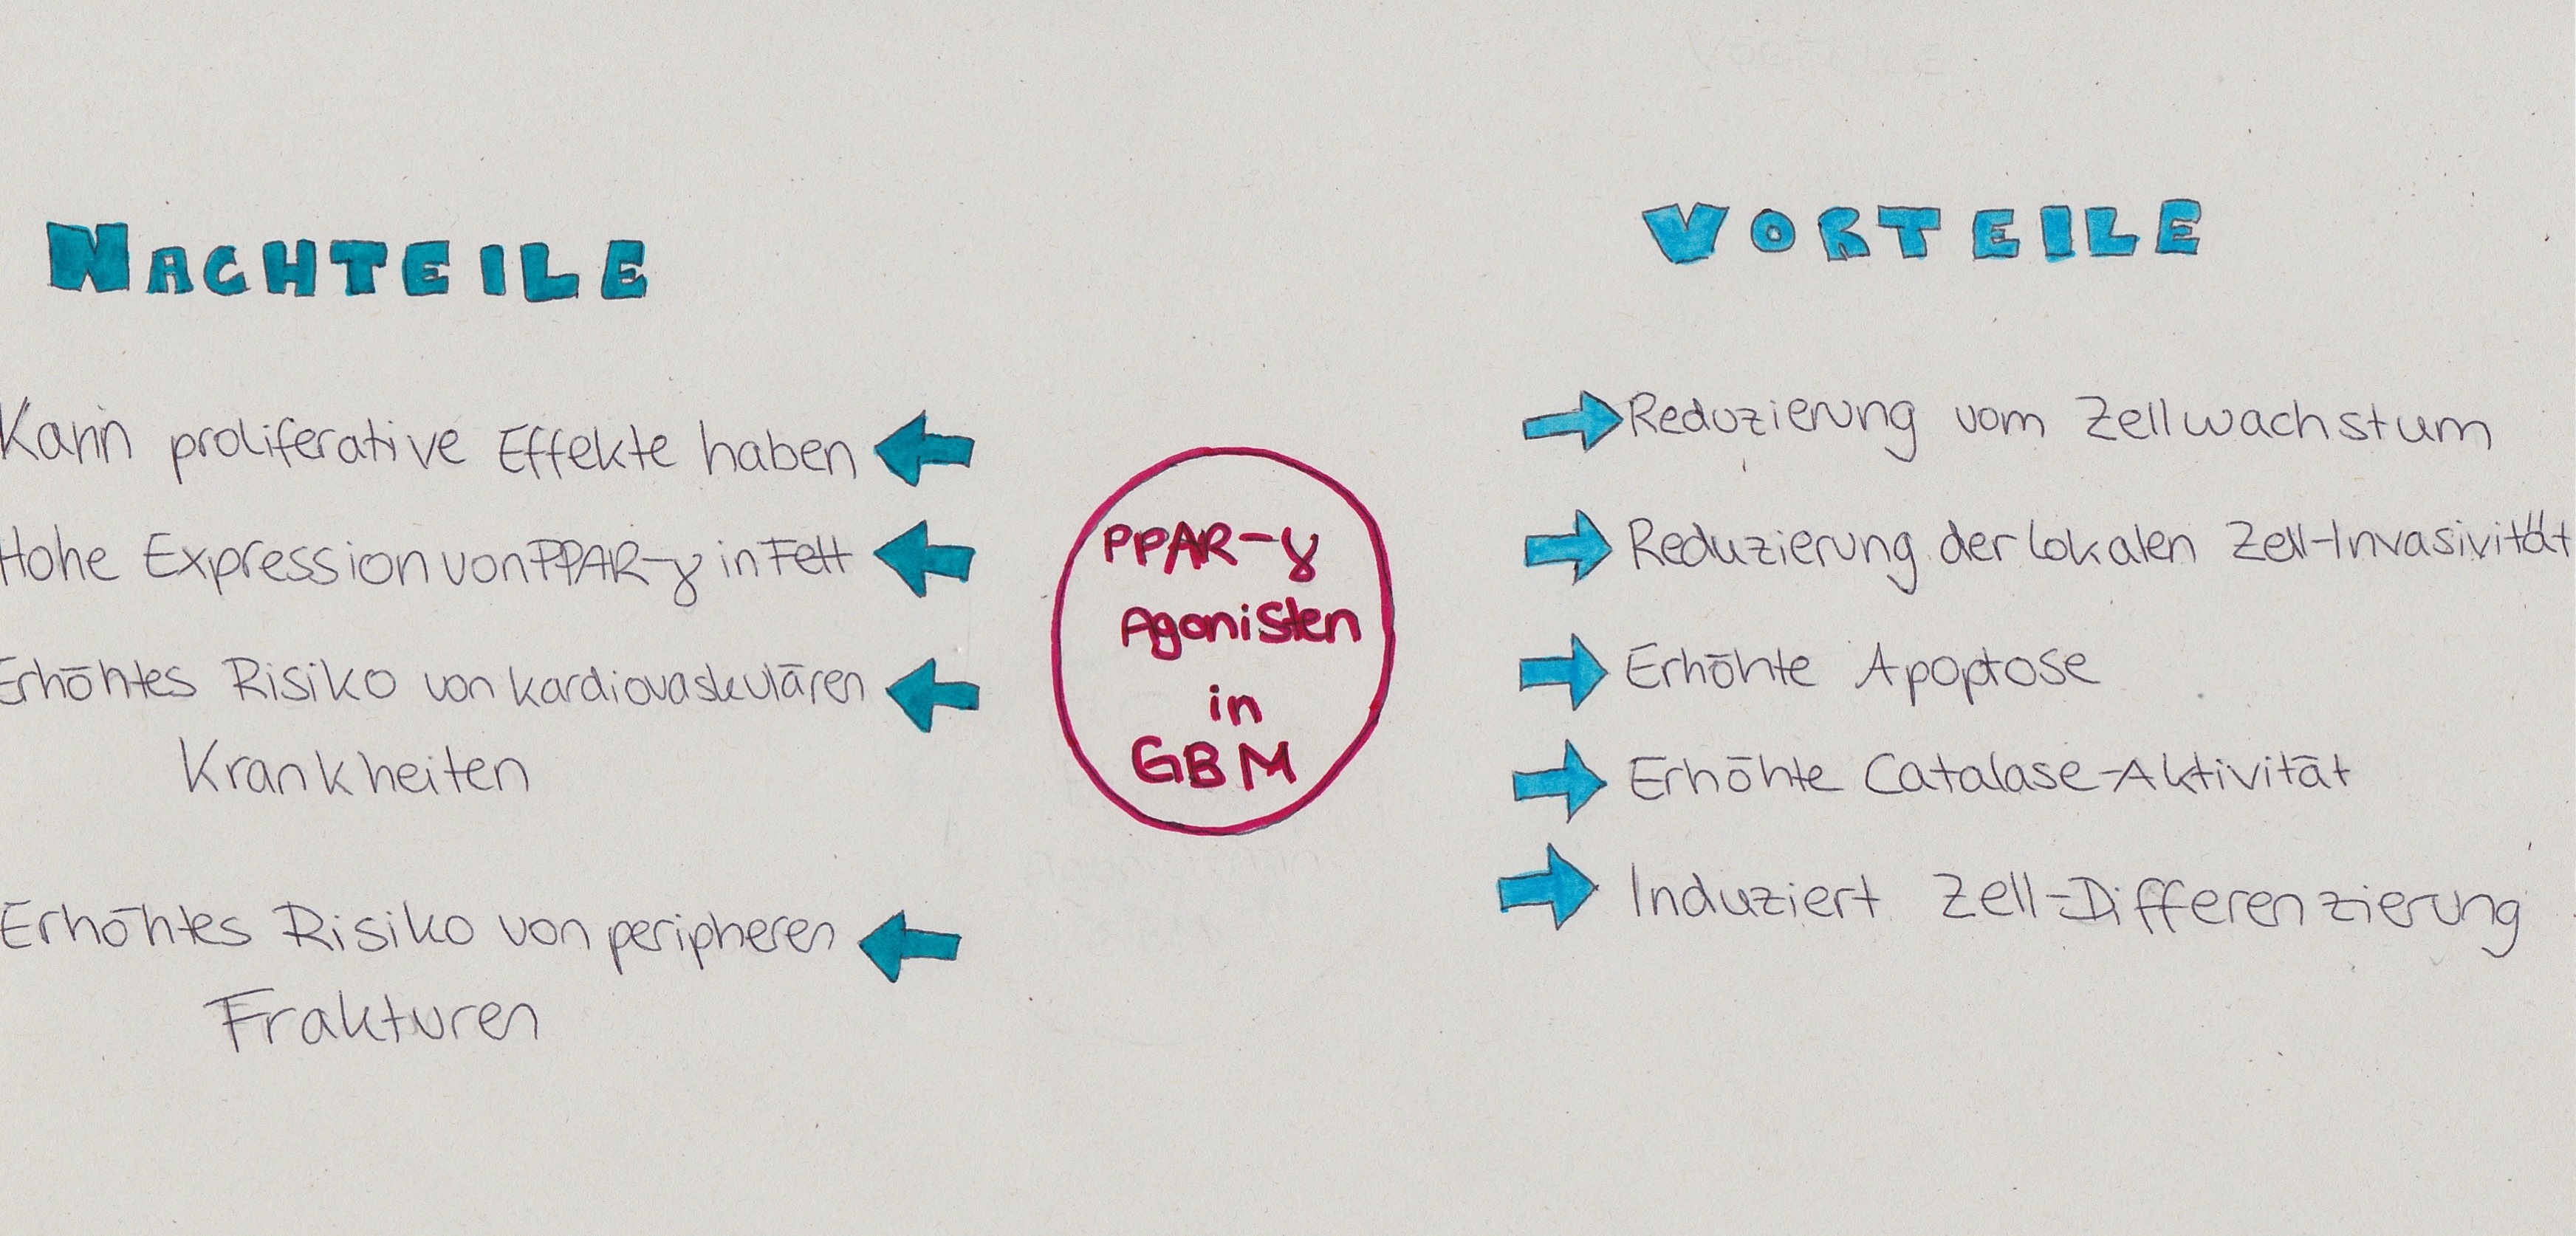 NACHTEILE
Kann proliferative Effekte haben
Hohe Expression von PPAR-γ in Fett
Erhöhtes Risiko von kardiovaskulären
Krankheiten
Erhöhtes Risiko von peripheren
Frakturen
PPAR-γ
Agonisten
in
GBM
VORTEILE
Reduzierung vom Zellwachstum
Reduzierung der lokalen Zell-Invasivität
Erhöhte Apoptose
Erhöhte Catalase-Aktivität
Induziert Zell-Differenzierung